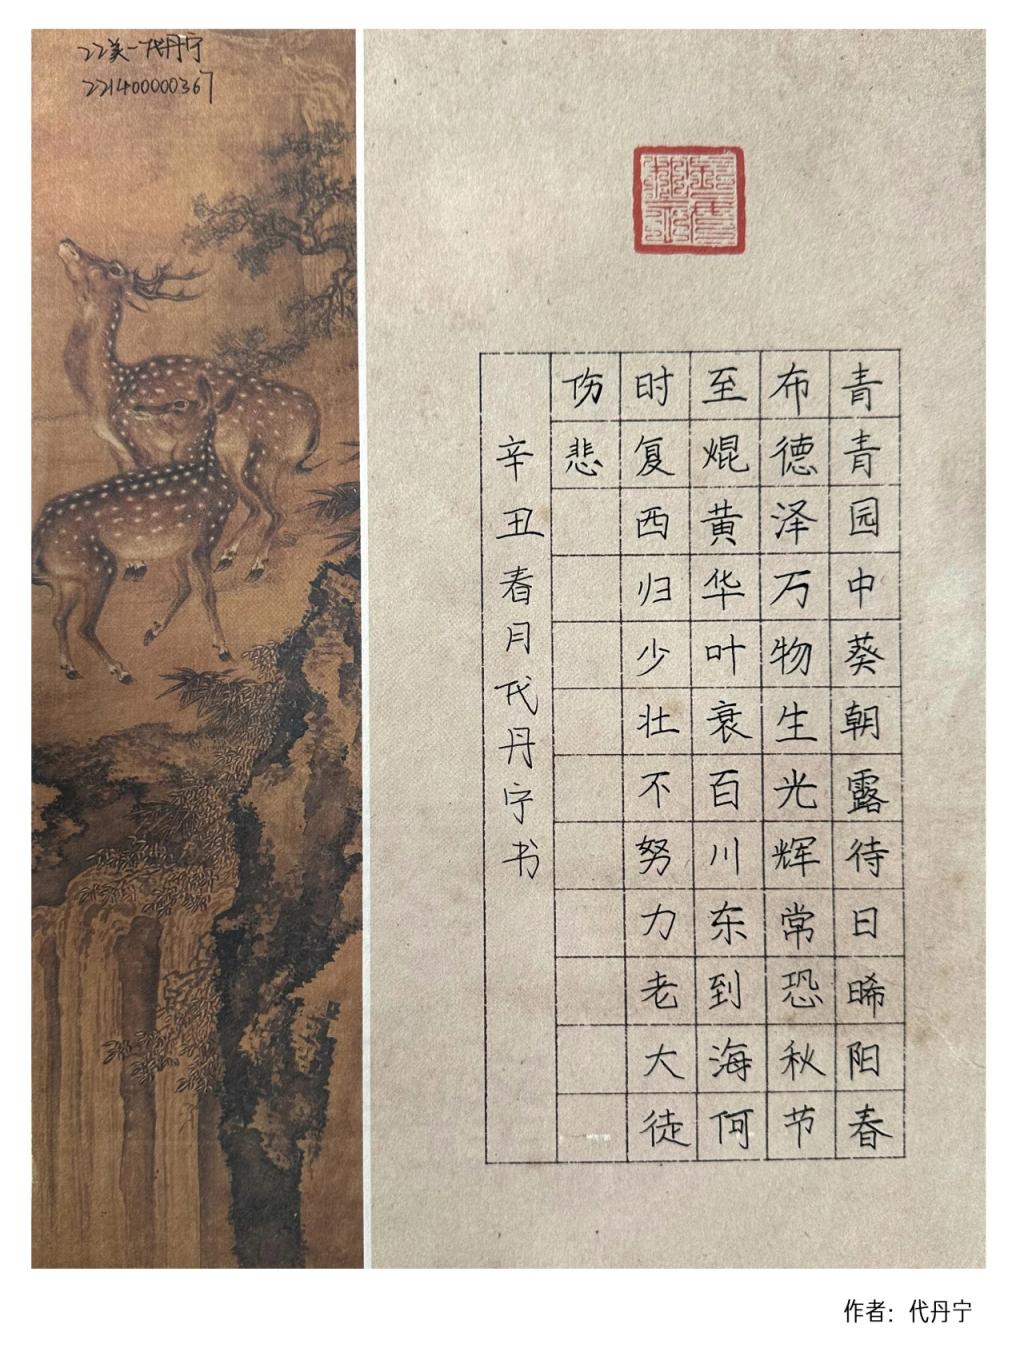 22美一代丹宁
22140000367
青青园中葵朝露待日晞阳春
布德泽万物生光辉常恐秋节
至焜黄华叶衰百川东到海何
时复西归少壮不努力老大徒
伤悲
辛丑春月代丹宁书
作者：代丹宁